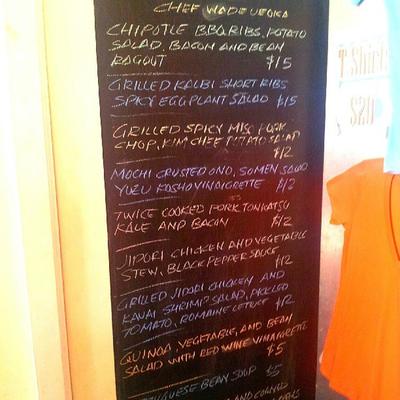 CHEF WADE UEOKA
CHIPOTLE BBQ RIBS, POTATO
SALAD, BACON AND BEAN
RAGOUT $15
GRILLED KALBI SHORT RIBS
SPICY EGGPLANT SALAD $15
GRILLED SPICY MISO PORK
CHOP, KIM CHEE POTATO SALAD
$12
MOCHI CRUSTED ONO, SOMEN SALAD
YUZU KOSHO VINAIGRETTE $12
TWICE COOKED PORK TONKATSU
KALE AND BACON $12
JIDORI CHICKEN AND VEGETABLE
STEW, BLACK PEPPER SAUCE
$12
GRILLED JIDORI CHICKEN AND
KAUAI SHRIMP SALAD, PICKLED
TOMATO, ROMAINE LETTUCE $12
QUINOA, VEGETABLE, AND BEAN
SALAD WITH RED WINE VINAIGRETTE
$5
BEAN SOUP $5
AND
T Shirts
$20